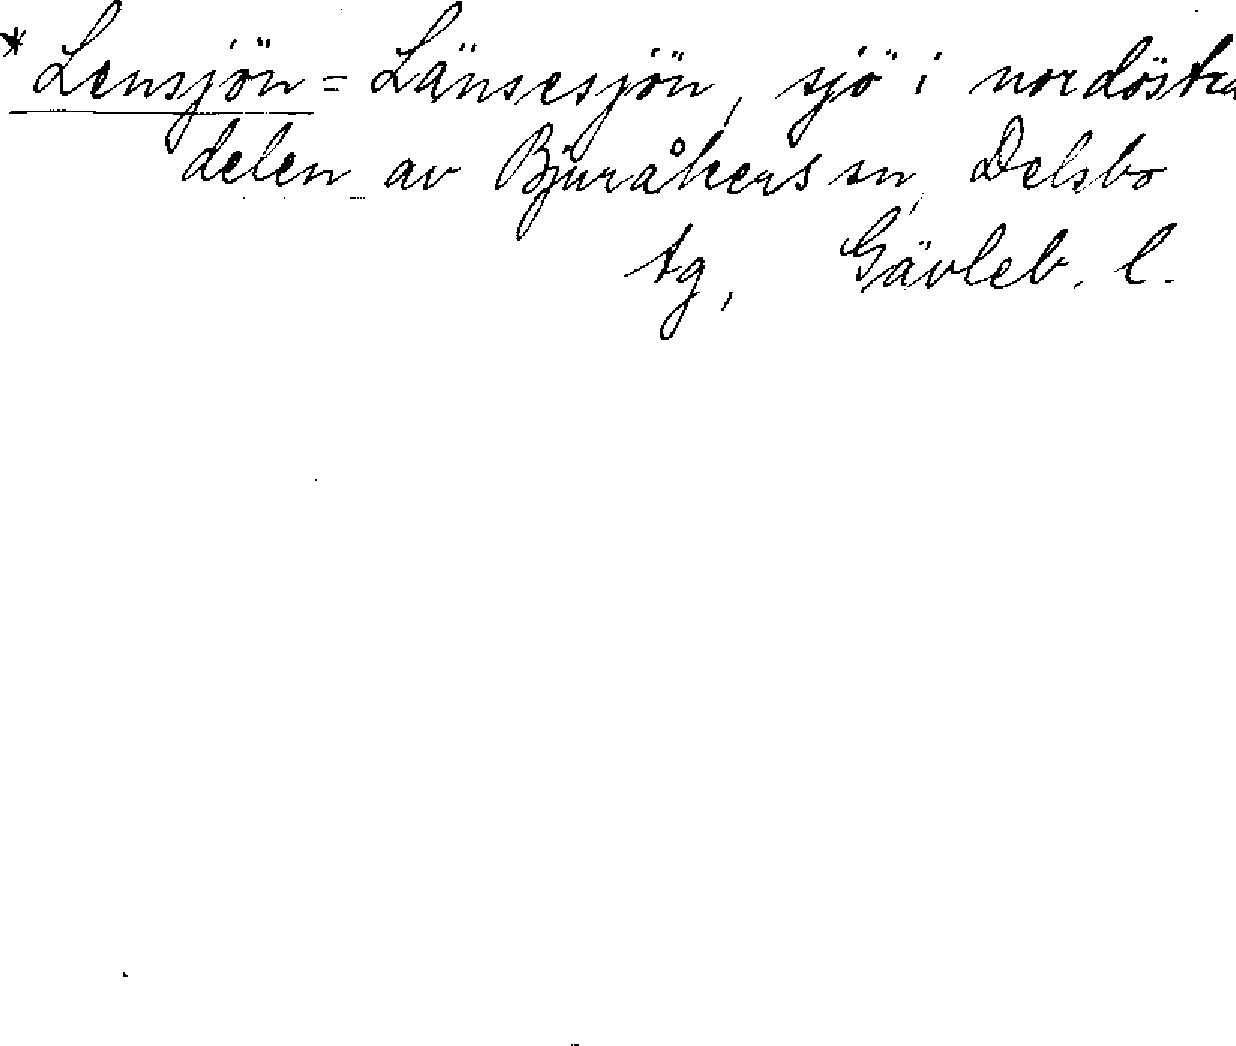 * Lensjön = Länsesjön, sjö i nordöstra
delen av Bjuråkers sn, Delsbo
tg, Gävleb. l.